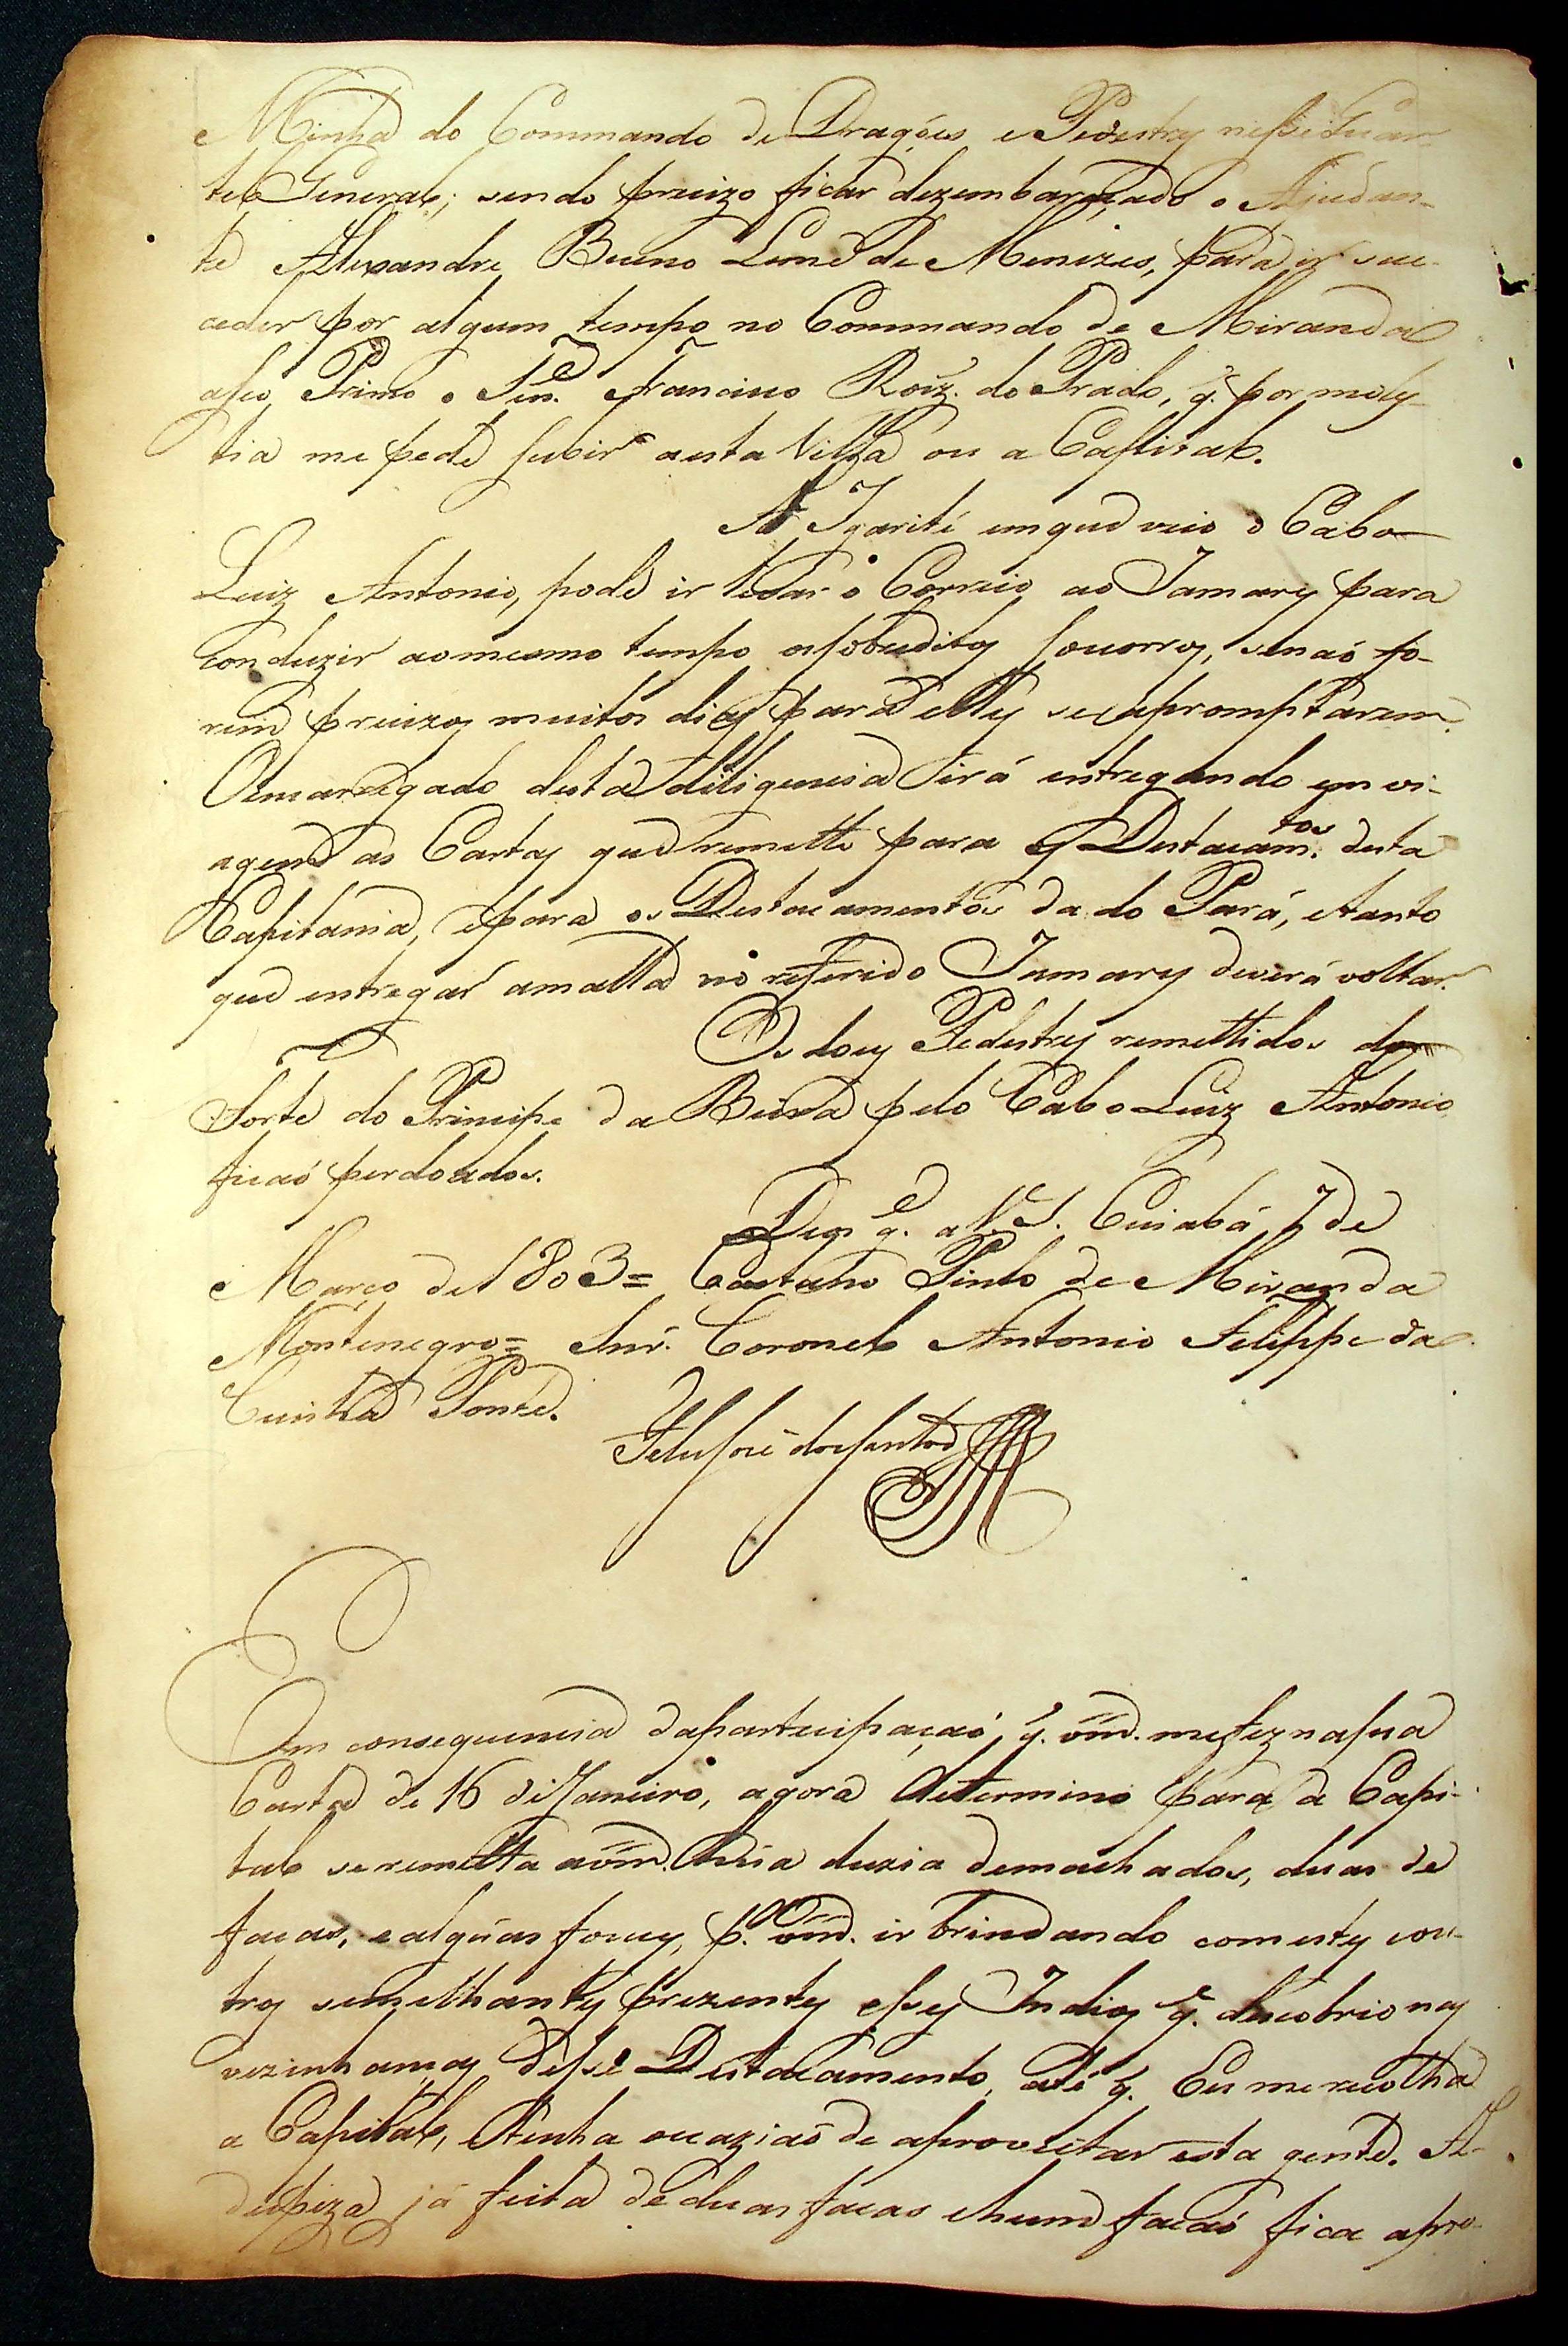 Minha do Commando de Dragóes e Pedestres nesse Quar-
tel General; sendo precizo ficar dezembaraçado o Ajudan-
te Alexandre Bueno Leme de Menizes, para ir suc-
ceder por algum tempo no Commando de Miranda
aseo Primo o Ten.e Francisco Roiz. do Prado, q. por moles-
tia me pede subir aesta Villa ou a Capital.
A Igarité emque veio o Cabo
Luiz Antonio, pode ir levar o Correio ao Jamary para
conduzir aomesmo tempo osobreditos socorros, senaó fo-
rem precizos muitos dias para elles se apromptarem.
Oemcarregado desta diligencia irá entregando em vi-
agem as Cartas que remette para os Destacam.tos desta
Capitania, epara os Destacamentos da do Pará, etanto
que entregar amalla no referido Jamary deverá voltar.
Os dous Pedestres remettidos do
Forte do Principe da Beira pelo Cabo Luiz Antonio
ficaó perdoados.
Deos g.e a V. S. Cuiabá 7 de
Março de 1803= Caetano Pinto de Miranda
Montenegro= Snr. Coronel Antonio Felippe da
Cunha Ponte.
Felis José dos Santos
Em consequencia daparticipaçaó, q. vm. mefez nasua
Carta de 16 de Janeiro, agora determino para a Capi-
tal se remetta avm. húa duzia demachados, duas de
facas, e algúas fouces, p.a vm. ir brindando com estes eou-
tros semelhantes prezentes esses Indios q. descobrio nas
vezinhanças desse Destacamento, até q. Eu me recolha
a Capital, etenha ocaziaó de aproveitar esta gente. A
despeza já feita de duas facas ehum facaó fica apro-